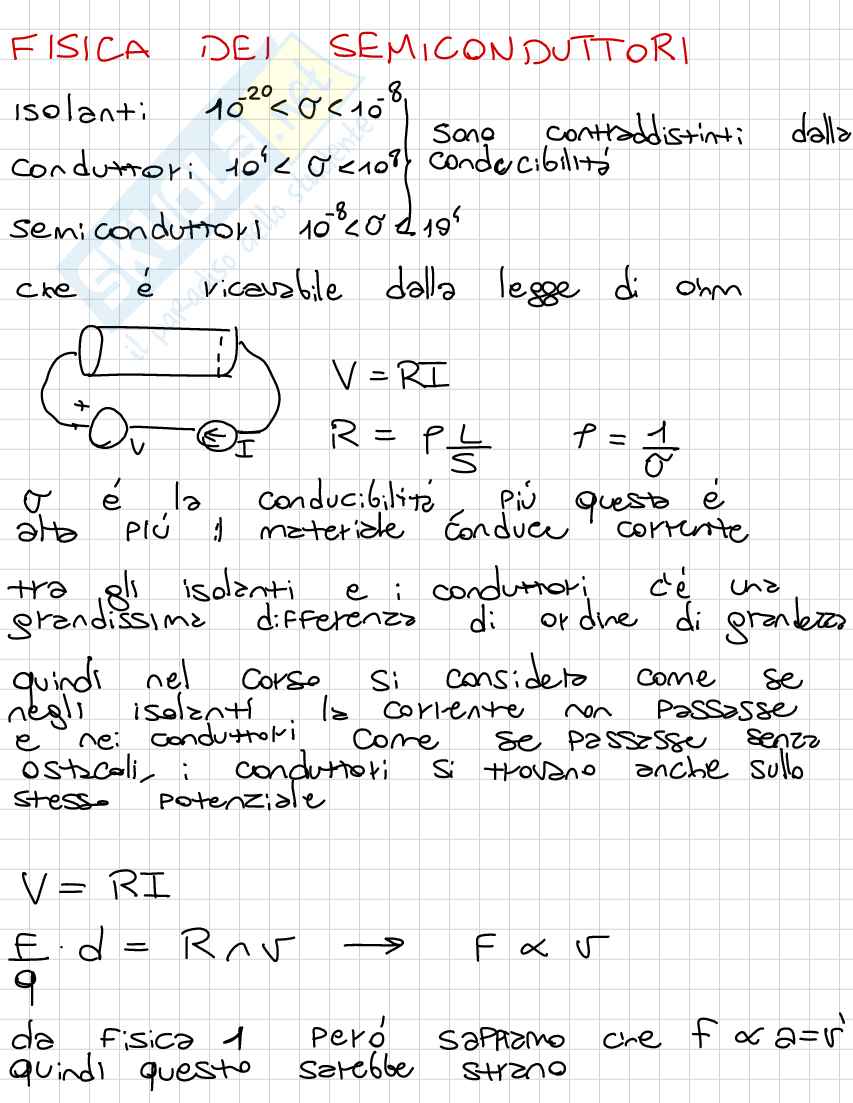 FISICA DEI SEMICONDUTTORI
isolanti 10^-20 < σ < 10^-8
conduttori 10^4 < σ < 10^8
semiconduttori 10^-8 < σ < 10^4
sono contraddistinti dalla
conducibilitá
che é ricavabile dalla legge di ohm
V = RI
R = ρ L/S ρ = 1/σ
+ V I
σ é la conducibilitá, piú questa é
alta piú il materiale conduce corrente
tra gli isolanti e i conduttori c'é una
grandissima differenza di ordine di grandezza
quindi nel corso si considera come se
negli isolanti la corrente non passasse
e nei conduttori come se passasse senza
ostacoli, i conduttori si trovano anche sullo
stesso potenziale
V = RI
F/q · d = R n v → F ∝ v
da fisica 1 peró sappiamo che f ∝ a = v̇
quindi questo sarebbe strano
SKUOLA.net
il paradiso dello studente